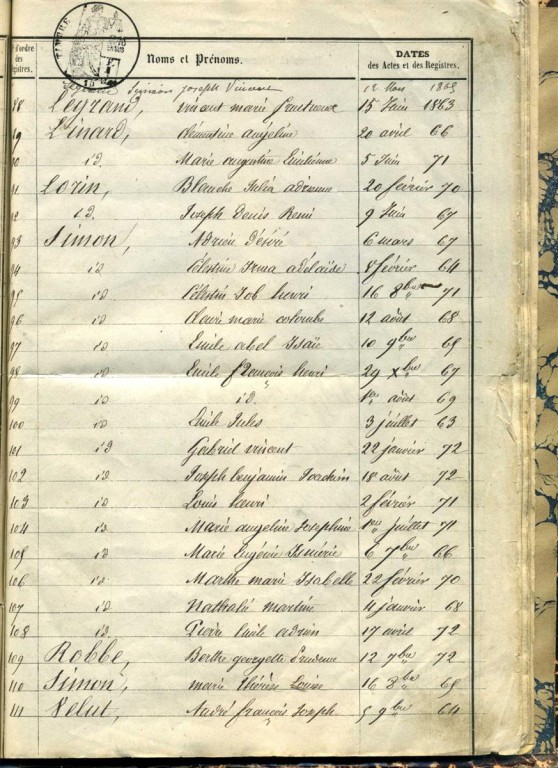 TIMBRE
d'ordre des Registres.
Noms et Prénoms.
DATES
des Actes et des Registres.
Legrand joseph Vincent 12 Mars 1865
88 Legrand, vincent marie 15 Juin 1863
89 Linard, clémentine angeline 20 avril 66
90 id. Marie augustine 5 Juin 71
91 Lorin, Blanche Julia adrienne 20 février 70
92 id. Joseph Denis Remi 9 Juin 67
93 Simon, Adrien Désiré 6 mars 67
94 id Célestine Irma adélaïde 8 février 64
95 id Célestin Job henri 16 8bre 71
96 id marie colombe 12 août 68
97 id Emile abel Isaïe 10 9bre 69
98 id Emile françois henri 29 Xbre 67
99 id id. 1er août 69
100 id Emile Jules 3 juillet 63
101 id Gabriel vincent 22 janvier 72
102 id Joseph benjamin Joachim 18 août 72
103 id Louis henri 2 février 71
104 id Marie angeline Josephine 1er juillet 71
105 id Marie Eugénie Ismérie 6 7bre 66
106 id Marthe marie Isabelle 22 février 70
107 id Nathalie martine 4 janvier 68
108 id. Emile adrien 17 avril 72
109 Robbe, Berthe georgette Prudence 12 7bre 72
110 Simon, marie thérèse Louise 16 8bre 69
111 Velut, André françois Joseph 5 9bre 64